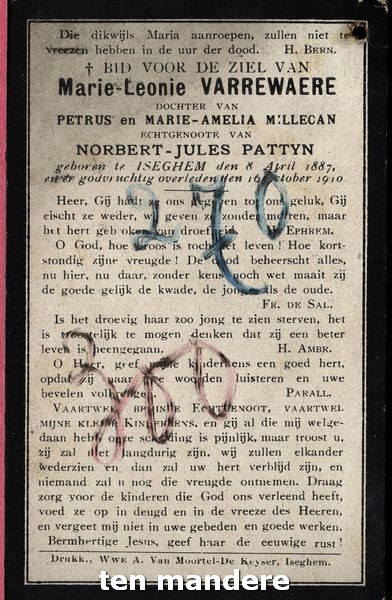 Die dikwijls Maria aanroepen, zullen niet te
vreezen hebben in de uur der dood. H. BERN.
† BID VOOR DE ZIEL VAN
Marie-Leonie VARREWAERE
DOCHTER VAN
PETRUS en MARIE-AMELIA MILLECAN
ECHTGENOOTE VAN
NORBERT-JULES PATTYN
geboren te ISEGHEM den 8 April 1887,
en er godvruchtig overleden den 16 October 1910.
Heer, Gij hadt ze ons gegeven tot ons geluk, Gij
eischt ze weder, wij geven ze zonder morren, maar
het hert gebroken van droefheid. H. EPHREM.
O God, hoe broos is toch het leven! Hoe kort-
stondig zijne vreugde! De dood beheerscht alles,
nu hier, nu daar, zonder keus noch wet maait zij
de goede gelijk de kwade, de jonge als de oude.
FR. DE SAL.
Is het droevig haar zoo jong te zien sterven, het
is troostelijk te mogen denken dat zij een beter
leven is heengegaan. H. AMBR.
O Heer, geef mijne kinderen een goed hert,
opdat zij naar uwe woorden luisteren en uwe
bevelen volbrengen. PARALL.
VAARTWEL BEMINDE ECHTGENOOT, VAARTWEL
MIJNE KLEINE KINDERKENS, en gij al die mij welge-
daan hebt, onze scheiding is pijnlijk, maar troost u,
zij zal niet langdurig zijn, wij zullen elkander
wederzien en dan zal uw hert verblijd zijn, en
niemand zal u nog die vreugde ontnemen. Draag
zorg voor de kinderen die God ons verleend heeft,
voed ze op in deugd en in de vreeze des Heeren,
en vergeet mij niet in uwe gebeden en goede werken.
Bermhertige Jesus, geef haar de eeuwige rust!
Drukk., Wwe A. Van Moortel-De Keyser, Iseghem.
270
300
ten mandere